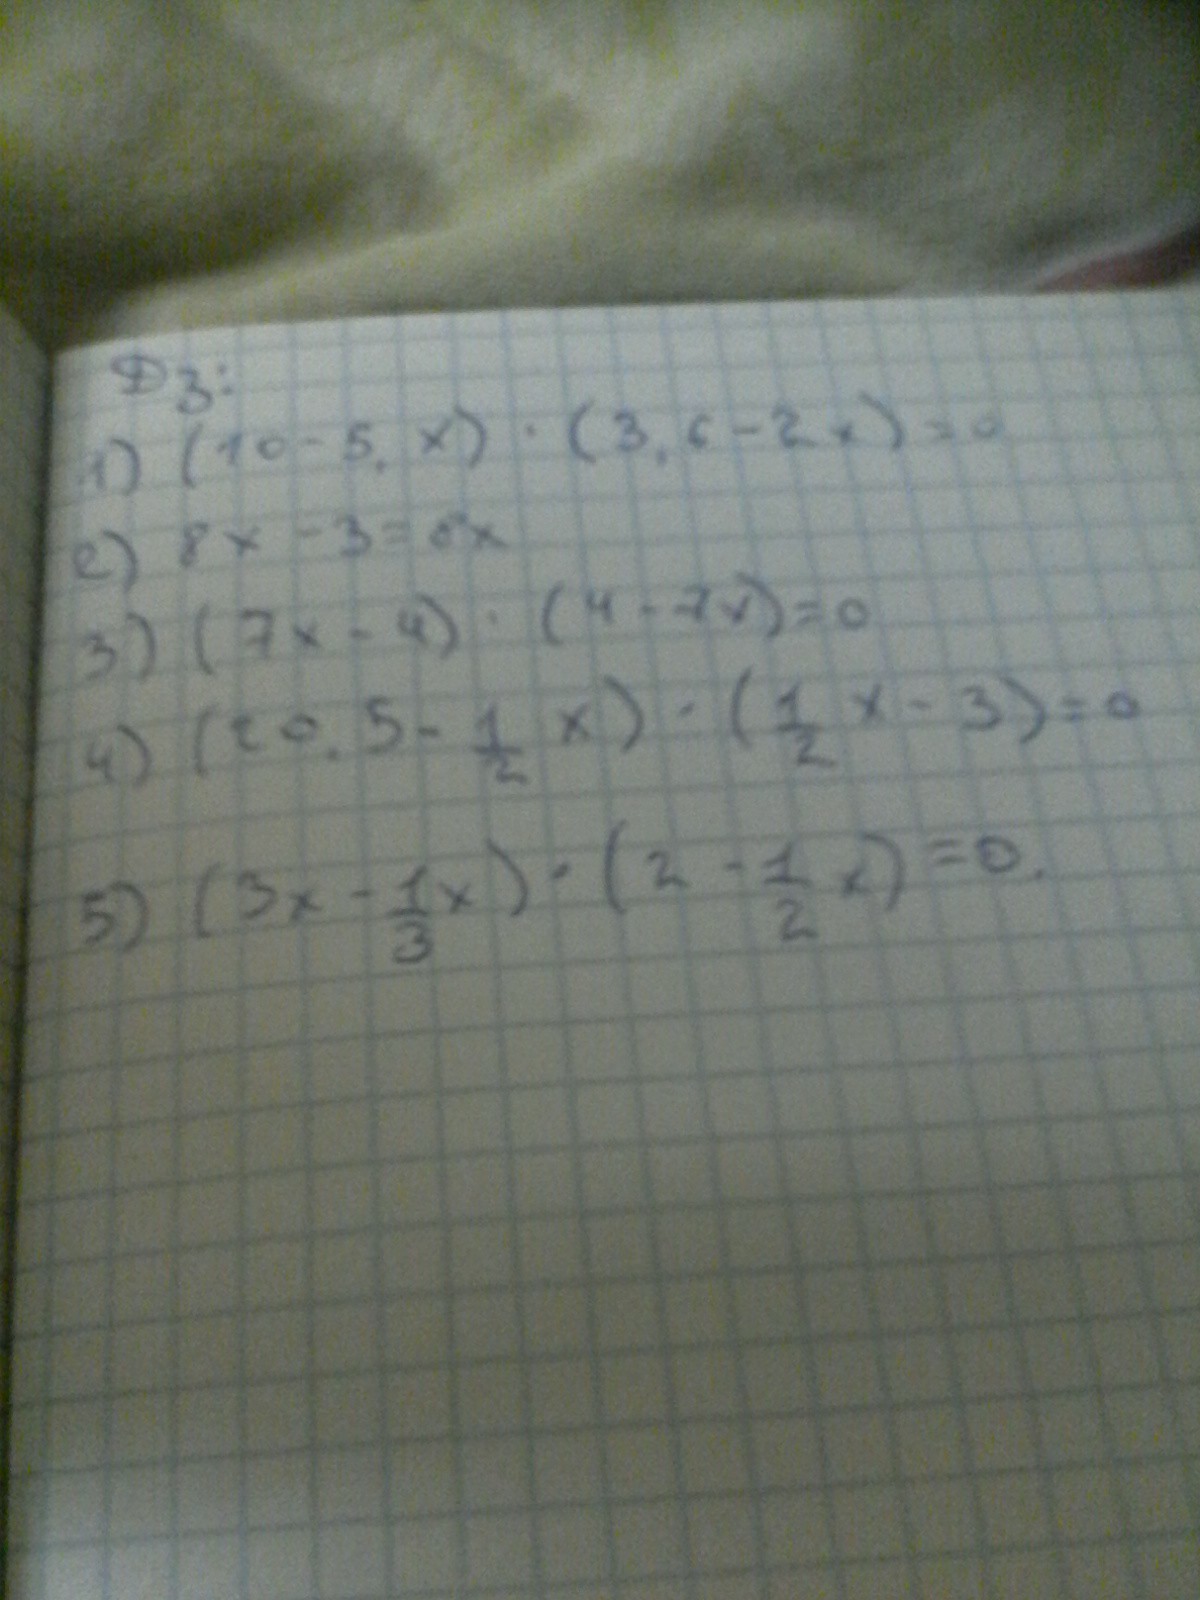 Дз:
1) (10 - 5, x) · (3,6 - 2x) = 0
2) 8x - 3 = 8x
3) (7x - 4) · (4 - 7x) = 0
4) (20,5 - 1/2 x) · (1/2 x - 3) = 0
5) (3x - 1/3 x) · (2 - 1/2 x) = 0.